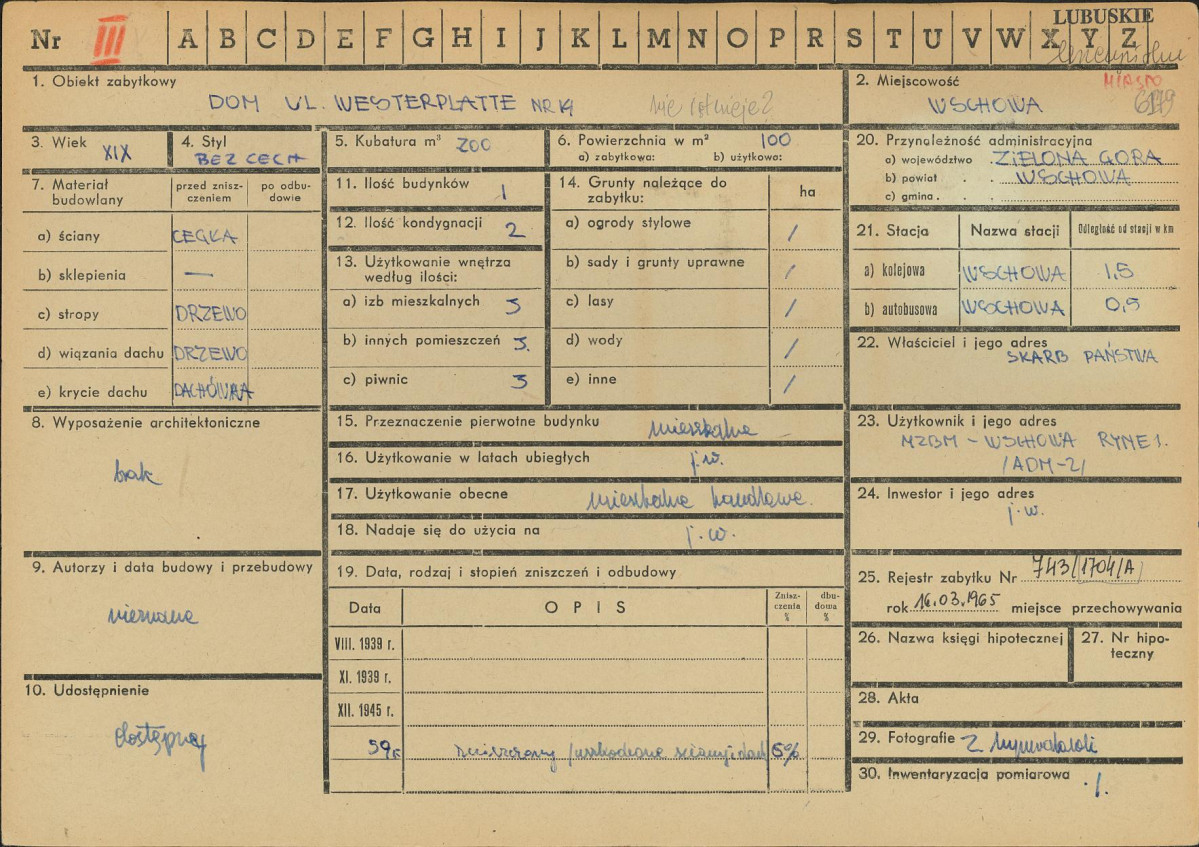 LUBUSKIE
Nr III A B C D E F G H I J K L M N O P R S T U V W X Y Z
MIASTO
1. Obiekt zabytkowy
DOM UL. WESTERPLATTE NR 14
nie istnieje?
2. Miejscowość
WSCHOWA
3. Wiek XIX
4. Styl BEZ CECH
5. Kubatura m³ 200
6. Powierzchnia w m² 100
a) zabytkowa: b) użytkowa:
20. Przynależność administracyjna
a) województwo ZIELONA GÓRA
b) powiat WSCHOWA
c) gmina
7. Materiał budowlany
przed zniszczeniem
po odbudowie
a) ściany CEGŁA
b) sklepienia —
c) stropy DRZEWO
d) wiązania dachu DRZEWO
e) krycie dachu DACHÓWKA
11. Ilość budynków 1
12. Ilość kondygnacji 2
13. Użytkowanie wnętrza
według ilości:
a) izb mieszkalnych 3
b) innych pomieszczeń 3.
c) piwnic 3
14. Grunty należące do
zabytku: ha
a) ogrody stylowe /
b) sady i grunty uprawne /
c) lasy /
d) wody /
e) inne /
21. Stacja Nazwa stacji Odległość od stacji w km
a) kolejowa WSCHOWA 1,5
b) autobusowa WSCHOWA 0,5
22. Właściciel i jego adres
SKARB PAŃSTWA
8. Wyposażenie architektoniczne
brak
15. Przeznaczenie pierwotne budynku mieszkalne
16. Użytkowanie w latach ubiegłych j.w.
17. Użytkowanie obecne mieszkalne handlowe.
18. Nadaje się do użycia na j.w.
23. Użytkownik i jego adres
MZBM - WSCHOWA RYNE1.
/ADM-2/
24. Inwestor i jego adres
j.w.
9. Autorzy i data budowy i przebudowy
nieznane
10. Udostępnienie
dostępny
19. Data, rodzaj i stopień zniszczeń i odbudowy
Data OPIS Zniszczenia % dbudowa %
VIII. 1939 r.
XI. 1939 r.
XII. 1945 r.
59 r. zniszczony /uszkodzone ściany i dach 5%
25. Rejestr zabytku Nr 743/1704/A
rok 16.03.1965 miejsce przechowywania
26. Nazwa księgi hipotecznej
27. Nr hipoteczny
28. Akta
29. Fotografie
30. Inwentaryzacja pomiarowa ./.